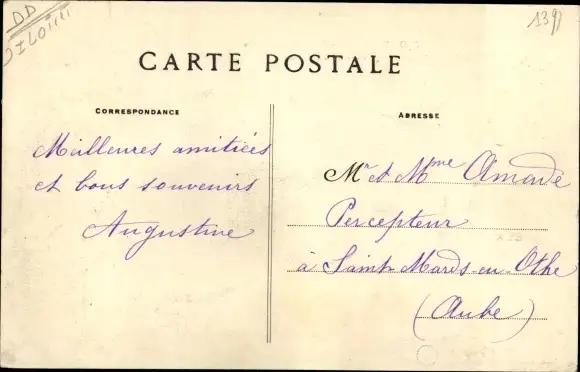 DD
1397
CARTE POSTALE
CORRESPONDANCE
ADRESSE
Meilleures amitiées
et bons souvenirs
Augustine
Mr et Mme Amade
Percepteur
à Saint-Mards-en-Othe
(Aube)